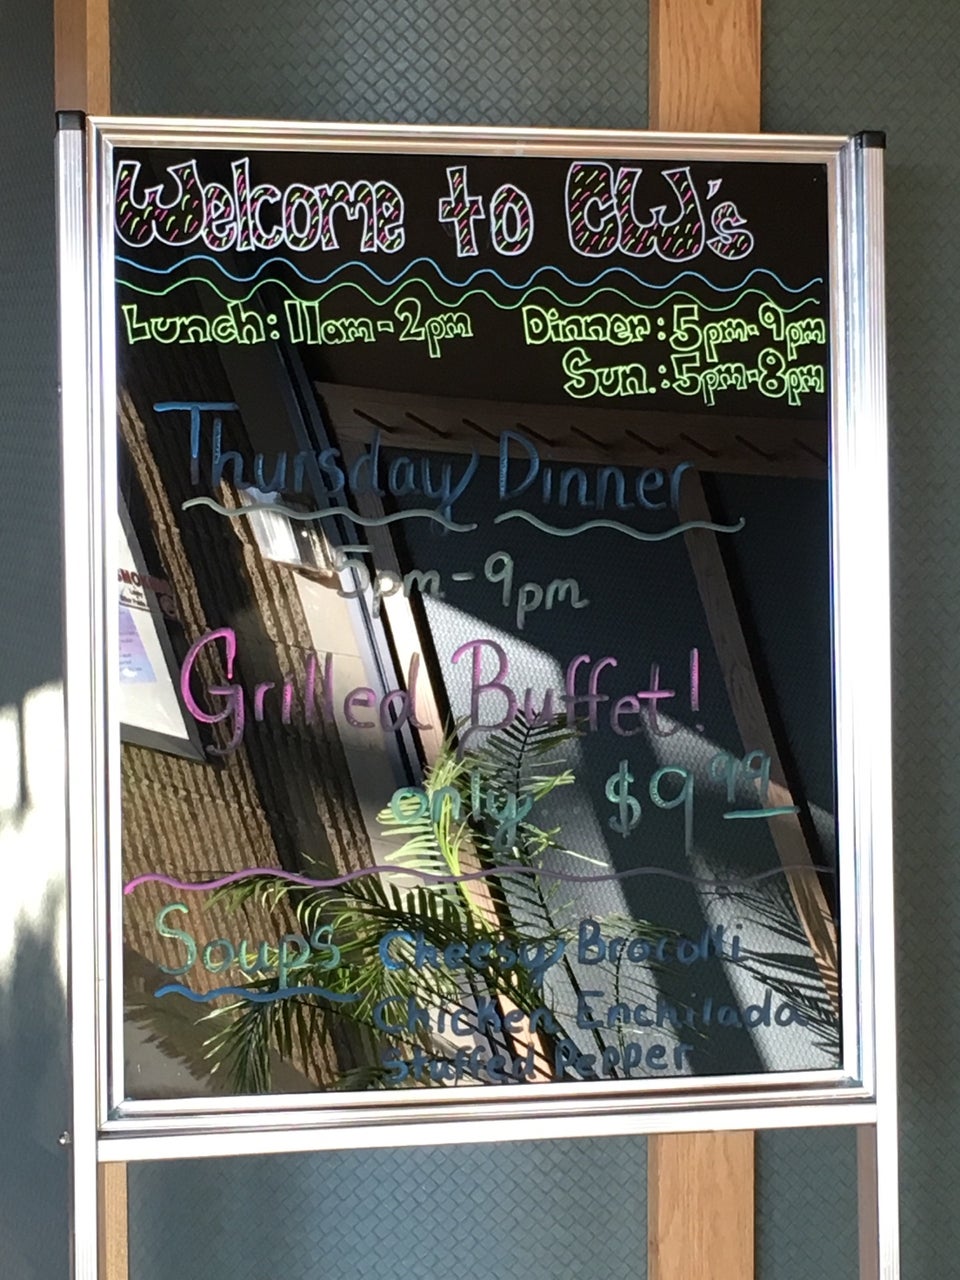 Welcome to CW's
Lunch: 11am-2pm
Dinner: 5pm-9pm
Sun.: 5pm-8pm
Thursday Dinner
5pm-9pm
Grilled Buffet!
only $9.99
Soups Cheesy Brocolli
Chicken Enchilada
Stuffed Pepper